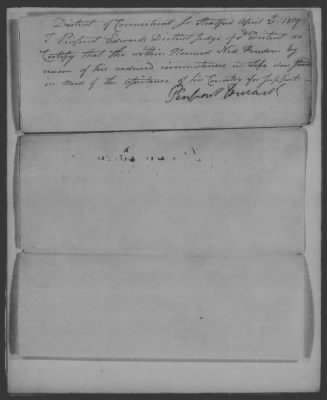 District of Connecticut ss Stratford April 20 1819
I Pierpont Edwards District Judge of sd District do
Certify that the within Named Ned Freedom by
reason of his reduced circumstances in Life does stand
in need of the assistance of his Country for support
Pierpont Edwards